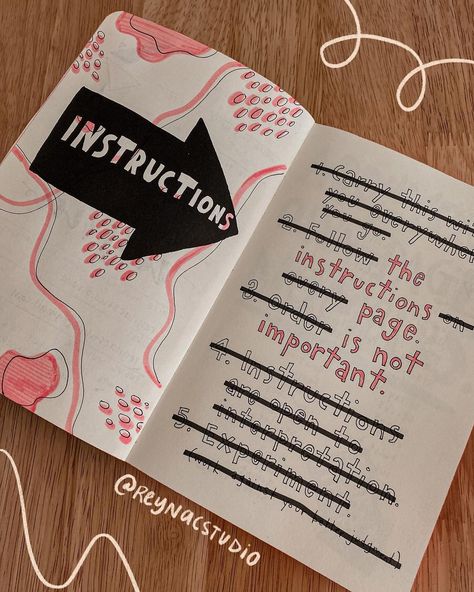 INSTRUCTIONS
1. Carry this with
you everywhere
you go.
2. Follow the
instructions on
every page.
3. Order is not
important.
4. Instructions
are open to
interpretation.
5. Experiment.
(work against your better judgment)
@REYNACSTUDIO